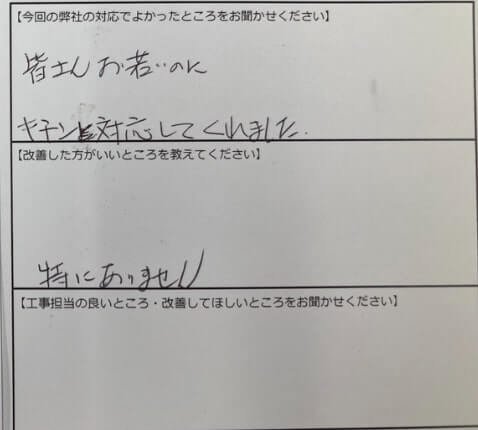 【今回の弊社の対応でよかったところをお聞かせください】
皆さんお若いのに
キチンと対応してくれました.
【改善した方がいいところを教えてください】
特にありません
【工事担当の良いところ・改善してほしいところをお聞かせください】